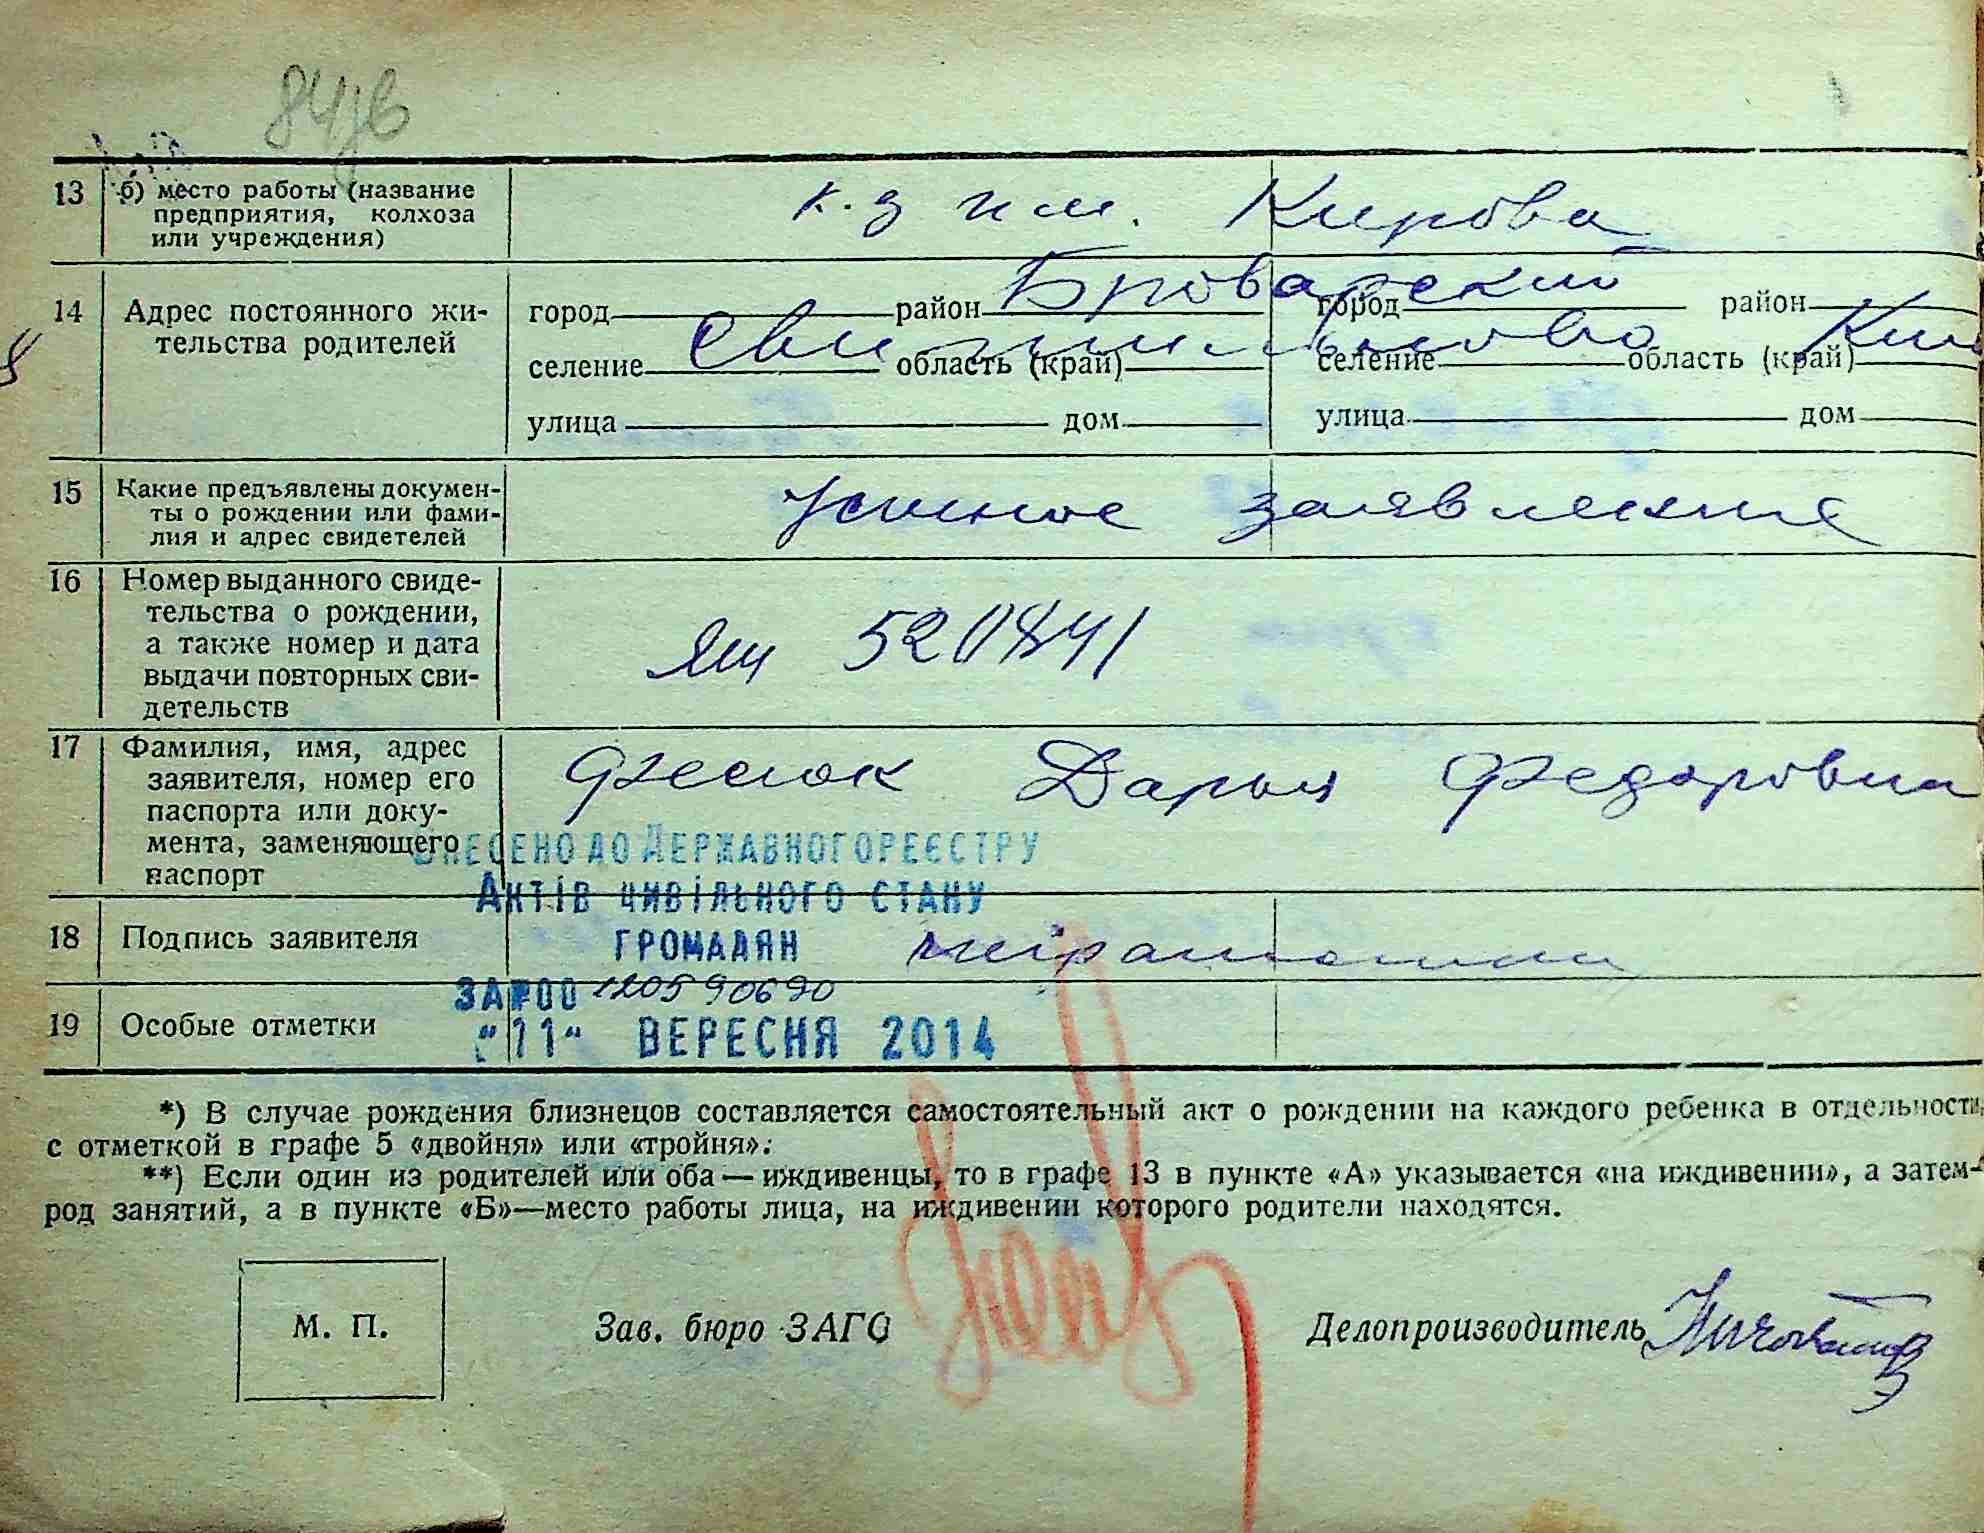 13 б) место работы (название
предприятия, колхоза
или учреждения)
к-з им. Кирова
14 Адрес постоянного жи-
тельства родителей
город район Броварский город район
селение область (край) селение область (край)
улица дом улица дом
15 Какие предъявлены докумен-
ты о рождении или фами-
лия и адрес свидетелей
Устное заявление
16 Номер выданного свиде-
тельства о рождении,
а также номер и дата
выдачи повторных сви-
детельств
ЯЩ 520841
17 Фамилия, имя, адрес
заявителя, номер его
паспорта или доку-
мента, заменяющего
паспорт
Фесюк Дарья Федоровна
Внесено до Державного реєстру
Актів цивільного стану
громадян
18 Подпись заявителя
неграмотная
за №00 120590690
19 Особые отметки
"11" вересня 2014
*) В случае рождения близнецов составляется самостоятельный акт о рождении на каждого ребенка в отдельности
с отметкой в графе 5 «двойня» или «тройня».
**) Если один из родителей или оба — иждивенцы, то в графе 13 в пункте «А» указывается «на иждивении», а затем-
род занятий, а в пункте «Б»—место работы лица, на иждивении которого родители находятся.
М. П. Зав. бюро ЗАГС Делопроизводитель